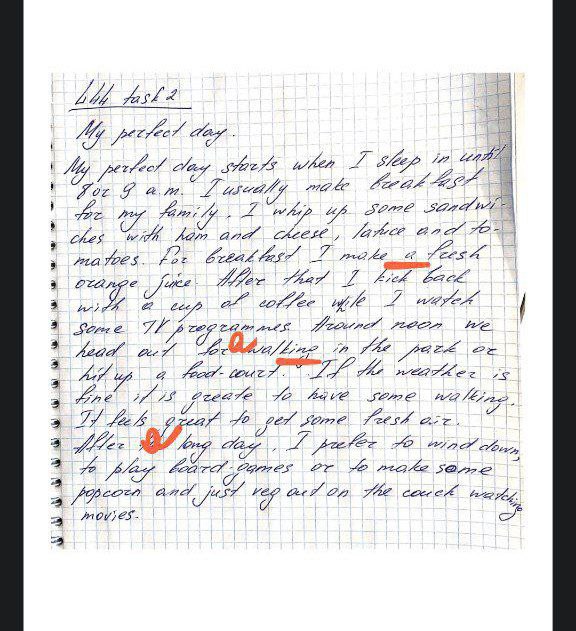 444 task 2
My perfect day.
My perfect day starts when I sleep in until
8 or 9 a.m. I usually make breakfast
for my family. I whip up some sandwi-
ches with ham and cheese, latuce and to-
matoes. For breakfast I make a fresh
orange juice. After that I kick back
with a cup of coffee while I watch
some TV programmes. Around noon we
head out for a walking in the park or
hit up a food-court. If the weather is
fine it is greate to have some walking.
It feels great to get some fresh air.
After a long day, I prefer to wind down,
to play board-games or to make some
popcorn and just veg out on the couch watching
movies.